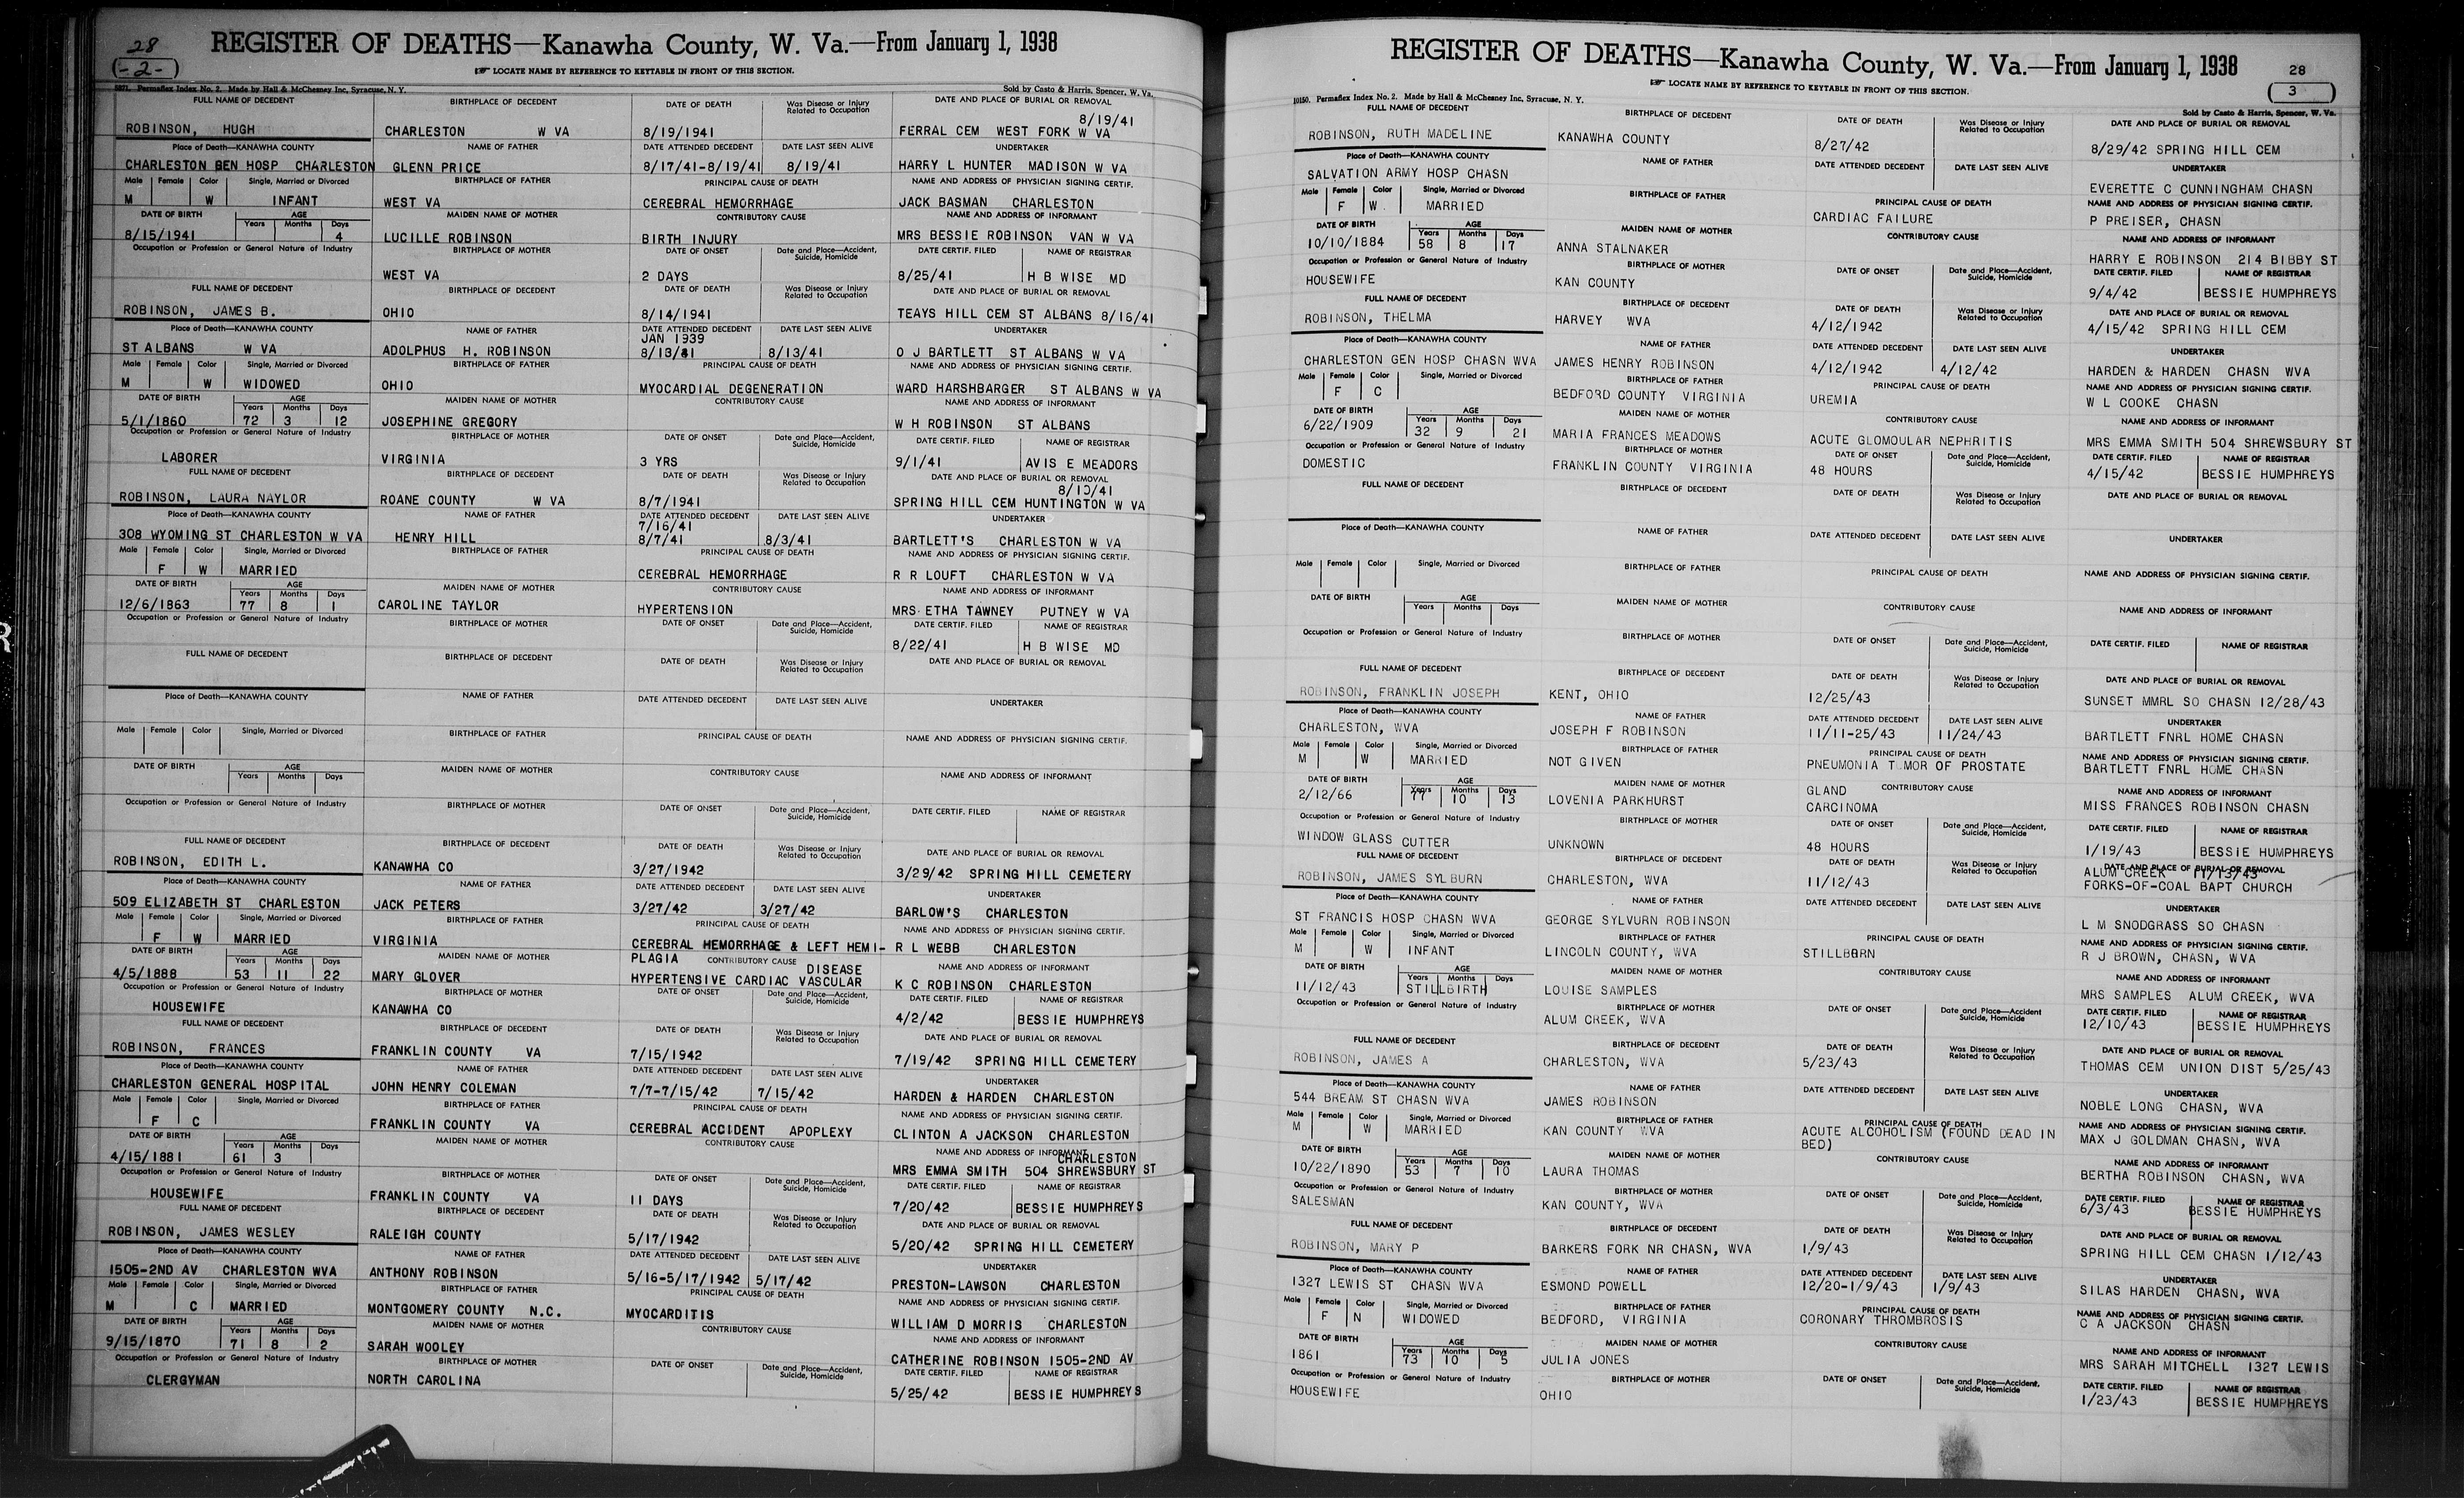 28
(-2-)
REGISTER OF DEATHS—Kanawha County, W. Va.—From January 1, 1938
☞ LOCATE NAME BY REFERENCE TO KEYTABLE IN FRONT OF THIS SECTION.
5871. Permaflex Index No. 2. Made by Hall & McChesney Inc, Syracuse, N. Y. Sold by Casto & Harris, Spencer, W. Va.
FULL NAME OF DECEDENT BIRTHPLACE OF DECEDENT DATE OF DEATH Was Disease or Injury Related to Occupation DATE AND PLACE OF BURIAL OR REMOVAL
8/19/41
ROBINSON, HUGH CHARLESTON W VA 8/19/1941 FERRAL CEM WEST FORK W VA
Place of Death—KANAWHA COUNTY NAME OF FATHER DATE ATTENDED DECEDENT DATE LAST SEEN ALIVE UNDERTAKER
CHARLESTON GEN HOSP CHARLESTON GLENN PRICE 8/17/41-8/19/41 8/19/41 HARRY L HUNTER MADISON W VA
Male Female Color Single, Married or Divorced BIRTHPLACE OF FATHER PRINCIPAL CAUSE OF DEATH NAME AND ADDRESS OF PHYSICIAN SIGNING CERTIF.
M W INFANT WEST VA CEREBRAL HEMORRHAGE JACK BASMAN CHARLESTON
DATE OF BIRTH AGE Years Months Days MAIDEN NAME OF MOTHER CONTRIBUTORY CAUSE NAME AND ADDRESS OF INFORMANT
8/15/1941 4 LUCILLE ROBINSON BIRTH INJURY MRS BESSIE ROBINSON VAN W VA
Occupation or Profession or General Nature of Industry BIRTHPLACE OF MOTHER DATE OF ONSET Date and Place—Accident, Suicide, Homicide DATE CERTIF. FILED NAME OF REGISTRAR
WEST VA 2 DAYS 8/25/41 H B WISE MD
FULL NAME OF DECEDENT BIRTHPLACE OF DECEDENT DATE OF DEATH Was Disease or Injury Related to Occupation DATE AND PLACE OF BURIAL OR REMOVAL
ROBINSON, JAMES B. OHIO 8/14/1941 TEAYS HILL CEM ST ALBANS 8/16/41
Place of Death—KANAWHA COUNTY NAME OF FATHER DATE ATTENDED DECEDENT DATE LAST SEEN ALIVE UNDERTAKER
JAN 1939
ST ALBANS W VA ADOLPHUS H. ROBINSON 8/13/41 8/13/41 O J BARTLETT ST ALBANS W VA
Male Female Color Single, Married or Divorced BIRTHPLACE OF FATHER PRINCIPAL CAUSE OF DEATH NAME AND ADDRESS OF PHYSICIAN SIGNING CERTIF.
M W WIDOWED OHIO MYOCARDIAL DEGENERATION WARD HARSHBARGER ST ALBANS W VA
DATE OF BIRTH AGE Years Months Days MAIDEN NAME OF MOTHER CONTRIBUTORY CAUSE NAME AND ADDRESS OF INFORMANT
5/1/1860 72 3 12 JOSEPHINE GREGORY W H ROBINSON ST ALBANS
Occupation or Profession or General Nature of Industry BIRTHPLACE OF MOTHER DATE OF ONSET Date and Place—Accident, Suicide, Homicide DATE CERTIF. FILED NAME OF REGISTRAR
LABORER VIRGINIA 3 YRS 9/1/41 AVIS E MEADORS
FULL NAME OF DECEDENT BIRTHPLACE OF DECEDENT DATE OF DEATH Was Disease or Injury Related to Occupation DATE AND PLACE OF BURIAL OR REMOVAL
8/10/41
ROBINSON, LAURA NAYLOR ROANE COUNTY W VA 8/7/1941 SPRING HILL CEM HUNTINGTON W VA
Place of Death—KANAWHA COUNTY NAME OF FATHER DATE ATTENDED DECEDENT DATE LAST SEEN ALIVE UNDERTAKER
7/16/41
308 WYOMING ST CHARLESTON W VA HENRY HILL 8/7/41 8/3/41 BARTLETT'S CHARLESTON W VA
Male Female Color Single, Married or Divorced BIRTHPLACE OF FATHER PRINCIPAL CAUSE OF DEATH NAME AND ADDRESS OF PHYSICIAN SIGNING CERTIF.
F W MARRIED CEREBRAL HEMORRHAGE R R LOUFT CHARLESTON W VA
DATE OF BIRTH AGE Years Months Days MAIDEN NAME OF MOTHER CONTRIBUTORY CAUSE NAME AND ADDRESS OF INFORMANT
12/6/1863 77 8 1 CAROLINE TAYLOR HYPERTENSION MRS ETHA TAWNEY PUTNEY W VA
Occupation or Profession or General Nature of Industry BIRTHPLACE OF MOTHER DATE OF ONSET Date and Place—Accident, Suicide, Homicide DATE CERTIF. FILED NAME OF REGISTRAR
8/22/41 H B WISE MD
FULL NAME OF DECEDENT BIRTHPLACE OF DECEDENT DATE OF DEATH Was Disease or Injury Related to Occupation DATE AND PLACE OF BURIAL OR REMOVAL
Place of Death—KANAWHA COUNTY NAME OF FATHER DATE ATTENDED DECEDENT DATE LAST SEEN ALIVE UNDERTAKER
Male Female Color Single, Married or Divorced BIRTHPLACE OF FATHER PRINCIPAL CAUSE OF DEATH NAME AND ADDRESS OF PHYSICIAN SIGNING CERTIF.
DATE OF BIRTH AGE Years Months Days MAIDEN NAME OF MOTHER CONTRIBUTORY CAUSE NAME AND ADDRESS OF INFORMANT
Occupation or Profession or General Nature of Industry BIRTHPLACE OF MOTHER DATE OF ONSET Date and Place—Accident, Suicide, Homicide DATE CERTIF. FILED NAME OF REGISTRAR
FULL NAME OF DECEDENT BIRTHPLACE OF DECEDENT DATE OF DEATH Was Disease or Injury Related to Occupation DATE AND PLACE OF BURIAL OR REMOVAL
ROBINSON, EDITH L. KANAWHA CO 3/27/1942 3/29/42 SPRING HILL CEMETERY
Place of Death—KANAWHA COUNTY NAME OF FATHER DATE ATTENDED DECEDENT DATE LAST SEEN ALIVE UNDERTAKER
509 ELIZABETH ST CHARLESTON JACK PETERS 3/27/42 3/27/42 BARLOW'S CHARLESTON
Male Female Color Single, Married or Divorced BIRTHPLACE OF FATHER PRINCIPAL CAUSE OF DEATH NAME AND ADDRESS OF PHYSICIAN SIGNING CERTIF.
F W MARRIED VIRGINIA CEREBRAL HEMORRHAGE & LEFT HEMI- R L WEBB CHARLESTON
DATE OF BIRTH AGE Years Months Days MAIDEN NAME OF MOTHER PLAGIA CONTRIBUTORY CAUSE DISEASE NAME AND ADDRESS OF INFORMANT
4/5/1888 53 11 22 MARY GLOVER HYPERTENSIVE CARDIAC VASCULAR K C ROBINSON CHARLESTON
Occupation or Profession or General Nature of Industry BIRTHPLACE OF MOTHER DATE OF ONSET Date and Place—Accident, Suicide, Homicide DATE CERTIF. FILED NAME OF REGISTRAR
HOUSEWIFE KANAWHA CO 4/2/42 BESSIE HUMPHREYS
FULL NAME OF DECEDENT BIRTHPLACE OF DECEDENT DATE OF DEATH Was Disease or Injury Related to Occupation DATE AND PLACE OF BURIAL OR REMOVAL
ROBINSON, FRANCES FRANKLIN COUNTY VA 7/15/1942 7/19/42 SPRING HILL CEMETERY
Place of Death—KANAWHA COUNTY NAME OF FATHER DATE ATTENDED DECEDENT DATE LAST SEEN ALIVE UNDERTAKER
CHARLESTON GENERAL HOSPITAL JOHN HENRY COLEMAN 7/7-7/15/42 7/15/42 HARDEN & HARDEN CHARLESTON
Male Female Color Single, Married or Divorced BIRTHPLACE OF FATHER PRINCIPAL CAUSE OF DEATH NAME AND ADDRESS OF PHYSICIAN SIGNING CERTIF.
F C FRANKLIN COUNTY VA CEREBRAL ACCIDENT APOPLEXY CLINTON A JACKSON CHARLESTON
DATE OF BIRTH AGE Years Months Days MAIDEN NAME OF MOTHER CONTRIBUTORY CAUSE NAME AND ADDRESS OF INFORMANT
CHARLESTON
4/15/1881 61 3 MRS EMMA SMITH 504 SHREWSBURY ST
Occupation or Profession or General Nature of Industry BIRTHPLACE OF MOTHER DATE OF ONSET Date and Place—Accident, Suicide, Homicide DATE CERTIF. FILED NAME OF REGISTRAR
HOUSEWIFE FRANKLIN COUNTY VA 11 DAYS 7/20/42 BESSIE HUMPHREYS
FULL NAME OF DECEDENT BIRTHPLACE OF DECEDENT DATE OF DEATH Was Disease or Injury Related to Occupation DATE AND PLACE OF BURIAL OR REMOVAL
ROBINSON, JAMES WESLEY RALEIGH COUNTY 5/17/1942 5/20/42 SPRING HILL CEMETERY
Place of Death—KANAWHA COUNTY NAME OF FATHER DATE ATTENDED DECEDENT DATE LAST SEEN ALIVE UNDERTAKER
1505-2ND AV CHARLESTON WVA ANTHONY ROBINSON 5/16-5/17/1942 5/17/42 PRESTON-LAWSON CHARLESTON
Male Female Color Single, Married or Divorced BIRTHPLACE OF FATHER PRINCIPAL CAUSE OF DEATH NAME AND ADDRESS OF PHYSICIAN SIGNING CERTIF.
M C MARRIED MONTGOMERY COUNTY N.C. MYOCARDITIS WILLIAM D MORRIS CHARLESTON
DATE OF BIRTH AGE Years Months Days MAIDEN NAME OF MOTHER CONTRIBUTORY CAUSE NAME AND ADDRESS OF INFORMANT
9/15/1870 71 8 2 SARAH WOOLEY CATHERINE ROBINSON 1505-2ND AV
Occupation or Profession or General Nature of Industry BIRTHPLACE OF MOTHER DATE OF ONSET Date and Place—Accident, Suicide, Homicide DATE CERTIF. FILED NAME OF REGISTRAR
CLERGYMAN NORTH CAROLINA 5/25/42 BESSIE HUMPHREYS
REGISTER OF DEATHS—Kanawha County, W. Va.—From January 1, 1938
28
3
☞ LOCATE NAME BY REFERENCE TO KEYTABLE IN FRONT OF THIS SECTION.
10150. Permaflex Index No. 2. Made by Hall & McChesney Inc, Syracuse, N. Y. Sold by Casto & Harris, Spencer, W. Va.
FULL NAME OF DECEDENT BIRTHPLACE OF DECEDENT DATE OF DEATH Was Disease or Injury Related to Occupation DATE AND PLACE OF BURIAL OR REMOVAL
ROBINSON, RUTH MADELINE KANAWHA COUNTY 8/27/42 8/29/42 SPRING HILL CEM
Place of Death—KANAWHA COUNTY NAME OF FATHER DATE ATTENDED DECEDENT DATE LAST SEEN ALIVE UNDERTAKER
SALVATION ARMY HOSP CHASN EVERETTE C CUNNINGHAM CHASN
Male Female Color Single, Married or Divorced BIRTHPLACE OF FATHER PRINCIPAL CAUSE OF DEATH NAME AND ADDRESS OF PHYSICIAN SIGNING CERTIF.
F W MARRIED CARDIAC FAILURE P PREISER, CHASN
DATE OF BIRTH AGE Years Months Days MAIDEN NAME OF MOTHER CONTRIBUTORY CAUSE NAME AND ADDRESS OF INFORMANT
10/10/1884 58 8 17 ANNA STALNAKER HARRY E ROBINSON 214 BIBBY ST
Occupation or Profession or General Nature of Industry BIRTHPLACE OF MOTHER DATE OF ONSET Date and Place—Accident, Suicide, Homicide DATE CERTIF. FILED NAME OF REGISTRAR
HOUSEWIFE KAN COUNTY 9/4/42 BESSIE HUMPHREYS
FULL NAME OF DECEDENT BIRTHPLACE OF DECEDENT DATE OF DEATH Was Disease or Injury Related to Occupation DATE AND PLACE OF BURIAL OR REMOVAL
ROBINSON, THELMA HARVEY WVA 4/12/1942 4/15/42 SPRING HILL CEM
Place of Death—KANAWHA COUNTY NAME OF FATHER DATE ATTENDED DECEDENT DATE LAST SEEN ALIVE UNDERTAKER
CHARLESTON GEN HOSP CHASN WVA JAMES HENRY ROBINSON 4/12/1942 4/12/42 HARDEN & HARDEN CHASN WVA
Male Female Color Single, Married or Divorced BIRTHPLACE OF FATHER PRINCIPAL CAUSE OF DEATH NAME AND ADDRESS OF PHYSICIAN SIGNING CERTIF.
F C BEDFORD COUNTY VIRGINIA UREMIA W L COOKE CHASN
DATE OF BIRTH AGE Years Months Days MAIDEN NAME OF MOTHER CONTRIBUTORY CAUSE NAME AND ADDRESS OF INFORMANT
6/22/1909 32 9 21 MARIA FRANCES MEADOWS ACUTE GLOMOULAR NEPHRITIS MRS EMMA SMITH 504 SHREWSBURY ST
Occupation or Profession or General Nature of Industry BIRTHPLACE OF MOTHER DATE OF ONSET Date and Place—Accident, Suicide, Homicide DATE CERTIF. FILED NAME OF REGISTRAR
DOMESTIC FRANKLIN COUNTY VIRGINIA 48 HOURS 4/15/42 BESSIE HUMPHREYS
FULL NAME OF DECEDENT BIRTHPLACE OF DECEDENT DATE OF DEATH Was Disease or Injury Related to Occupation DATE AND PLACE OF BURIAL OR REMOVAL
Place of Death—KANAWHA COUNTY NAME OF FATHER DATE ATTENDED DECEDENT DATE LAST SEEN ALIVE UNDERTAKER
Male Female Color Single, Married or Divorced BIRTHPLACE OF FATHER PRINCIPAL CAUSE OF DEATH NAME AND ADDRESS OF PHYSICIAN SIGNING CERTIF.
DATE OF BIRTH AGE Years Months Days MAIDEN NAME OF MOTHER CONTRIBUTORY CAUSE NAME AND ADDRESS OF INFORMANT
Occupation or Profession or General Nature of Industry BIRTHPLACE OF MOTHER DATE OF ONSET Date and Place—Accident, Suicide, Homicide DATE CERTIF. FILED NAME OF REGISTRAR
FULL NAME OF DECEDENT BIRTHPLACE OF DECEDENT DATE OF DEATH Was Disease or Injury Related to Occupation DATE AND PLACE OF BURIAL OR REMOVAL
ROBINSON, FRANKLIN JOSEPH KENT, OHIO 12/25/43 SUNSET MMRL SO CHASN 12/28/43
Place of Death—KANAWHA COUNTY NAME OF FATHER DATE ATTENDED DECEDENT DATE LAST SEEN ALIVE UNDERTAKER
CHARLESTON, WVA JOSEPH F ROBINSON 11/11-25/43 11/24/43 BARTLETT FNRL HOME CHASN
Male Female Color Single, Married or Divorced BIRTHPLACE OF FATHER PRINCIPAL CAUSE OF DEATH NAME AND ADDRESS OF PHYSICIAN SIGNING CERTIF.
M W MARRIED NOT GIVEN PNEUMONIA TUMOR OF PROSTATE BARTLETT FNRL HOME CHASN
DATE OF BIRTH AGE Years Months Days MAIDEN NAME OF MOTHER GLAND CONTRIBUTORY CAUSE NAME AND ADDRESS OF INFORMANT
2/12/66 77 10 13 LOVENIA PARKHURST CARCINOMA MISS FRANCES ROBINSON CHASN
Occupation or Profession or General Nature of Industry BIRTHPLACE OF MOTHER DATE OF ONSET Date and Place—Accident, Suicide, Homicide DATE CERTIF. FILED NAME OF REGISTRAR
WINDOW GLASS CUTTER UNKNOWN 48 HOURS 1/19/43 BESSIE HUMPHREYS
FULL NAME OF DECEDENT BIRTHPLACE OF DECEDENT DATE OF DEATH Was Disease or Injury Related to Occupation DATE AND PLACE OF BURIAL OR REMOVAL
ALUM CREEK 11/13/43
ROBINSON, JAMES SYLBURN CHARLESTON, WVA 11/12/43 FORKS-OF-COAL BAPT CHURCH
Place of Death—KANAWHA COUNTY NAME OF FATHER DATE ATTENDED DECEDENT DATE LAST SEEN ALIVE UNDERTAKER
ST FRANCIS HOSP CHASN WVA GEORGE SYLVURN ROBINSON L M SNODGRASS SO CHASN
Male Female Color Single, Married or Divorced BIRTHPLACE OF FATHER PRINCIPAL CAUSE OF DEATH NAME AND ADDRESS OF PHYSICIAN SIGNING CERTIF.
M W INFANT LINCOLN COUNTY, WVA STILLBORN R J BROWN, CHASN, WVA
DATE OF BIRTH AGE Years Months Days MAIDEN NAME OF MOTHER CONTRIBUTORY CAUSE NAME AND ADDRESS OF INFORMANT
11/12/43 STILLBIRTH LOUISE SAMPLES MRS SAMPLES ALUM CREEK, WVA
Occupation or Profession or General Nature of Industry BIRTHPLACE OF MOTHER DATE OF ONSET Date and Place—Accident Suicide, Homicide DATE CERTIF. FILED NAME OF REGISTRAR
ALUM CREEK, WVA 12/10/43 BESSIE HUMPHREYS
FULL NAME OF DECEDENT BIRTHPLACE OF DECEDENT DATE OF DEATH Was Disease or Injury Related to Occupation DATE AND PLACE OF BURIAL OR REMOVAL
ROBINSON, JAMES A CHARLESTON, WVA 5/23/43 THOMAS CEM UNION DIST 5/25/43
Place of Death—KANAWHA COUNTY NAME OF FATHER DATE ATTENDED DECEDENT DATE LAST SEEN ALIVE UNDERTAKER
544 BREAM ST CHASN WVA JAMES ROBINSON NOBLE LONG CHASN, WVA
Male Female Color Single, Married or Divorced BIRTHPLACE OF FATHER PRINCIPAL CAUSE OF DEATH NAME AND ADDRESS OF PHYSICIAN SIGNING CERTIF.
M W MARRIED KAN COUNTY WVA ACUTE ALCOHOLISM (FOUND DEAD IN BED) MAX J GOLDMAN CHASN, WVA
DATE OF BIRTH AGE Years Months Days MAIDEN NAME OF MOTHER CONTRIBUTORY CAUSE NAME AND ADDRESS OF INFORMANT
10/22/1890 53 7 10 LAURA THOMAS BERTHA ROBINSON CHASN, WVA
Occupation or Profession or General Nature of Industry BIRTHPLACE OF MOTHER DATE OF ONSET Date and Place—Accident, Suicide, Homicide DATE CERTIF. FILED NAME OF REGISTRAR
SALESMAN KAN COUNTY, WVA 6/3/43 BESSIE HUMPHREYS
FULL NAME OF DECEDENT BIRTHPLACE OF DECEDENT DATE OF DEATH Was Disease or Injury Related to Occupation DATE AND PLACE OF BURIAL OR REMOVAL
ROBINSON, MARY P BARKERS FORK NR CHASN, WVA 1/9/43 SPRING HILL CEM CHASN 1/12/43
Place of Death—KANAWHA COUNTY NAME OF FATHER DATE ATTENDED DECEDENT DATE LAST SEEN ALIVE UNDERTAKER
1327 LEWIS ST CHASN WVA ESMOND POWELL 12/20-1/9/43 1/9/43 SILAS HARDEN CHASN, WVA
Male Female Color Single, Married or Divorced BIRTHPLACE OF FATHER PRINCIPAL CAUSE OF DEATH NAME AND ADDRESS OF PHYSICIAN SIGNING CERTIF.
F N WIDOWED BEDFORD, VIRGINIA CORONARY THROMBROSIS C A JACKSON CHASN
DATE OF BIRTH AGE Years Months Days MAIDEN NAME OF MOTHER CONTRIBUTORY CAUSE NAME AND ADDRESS OF INFORMANT
1861 73 10 5 JULIA JONES MRS SARAH MITCHELL 1327 LEWIS
Occupation or Profession or General Nature of Industry BIRTHPLACE OF MOTHER DATE OF ONSET Date and Place—Accident, Suicide, Homicide DATE CERTIF. FILED NAME OF REGISTRAR
HOUSEWIFE OHIO 1/23/43 BESSIE HUMPHREYS